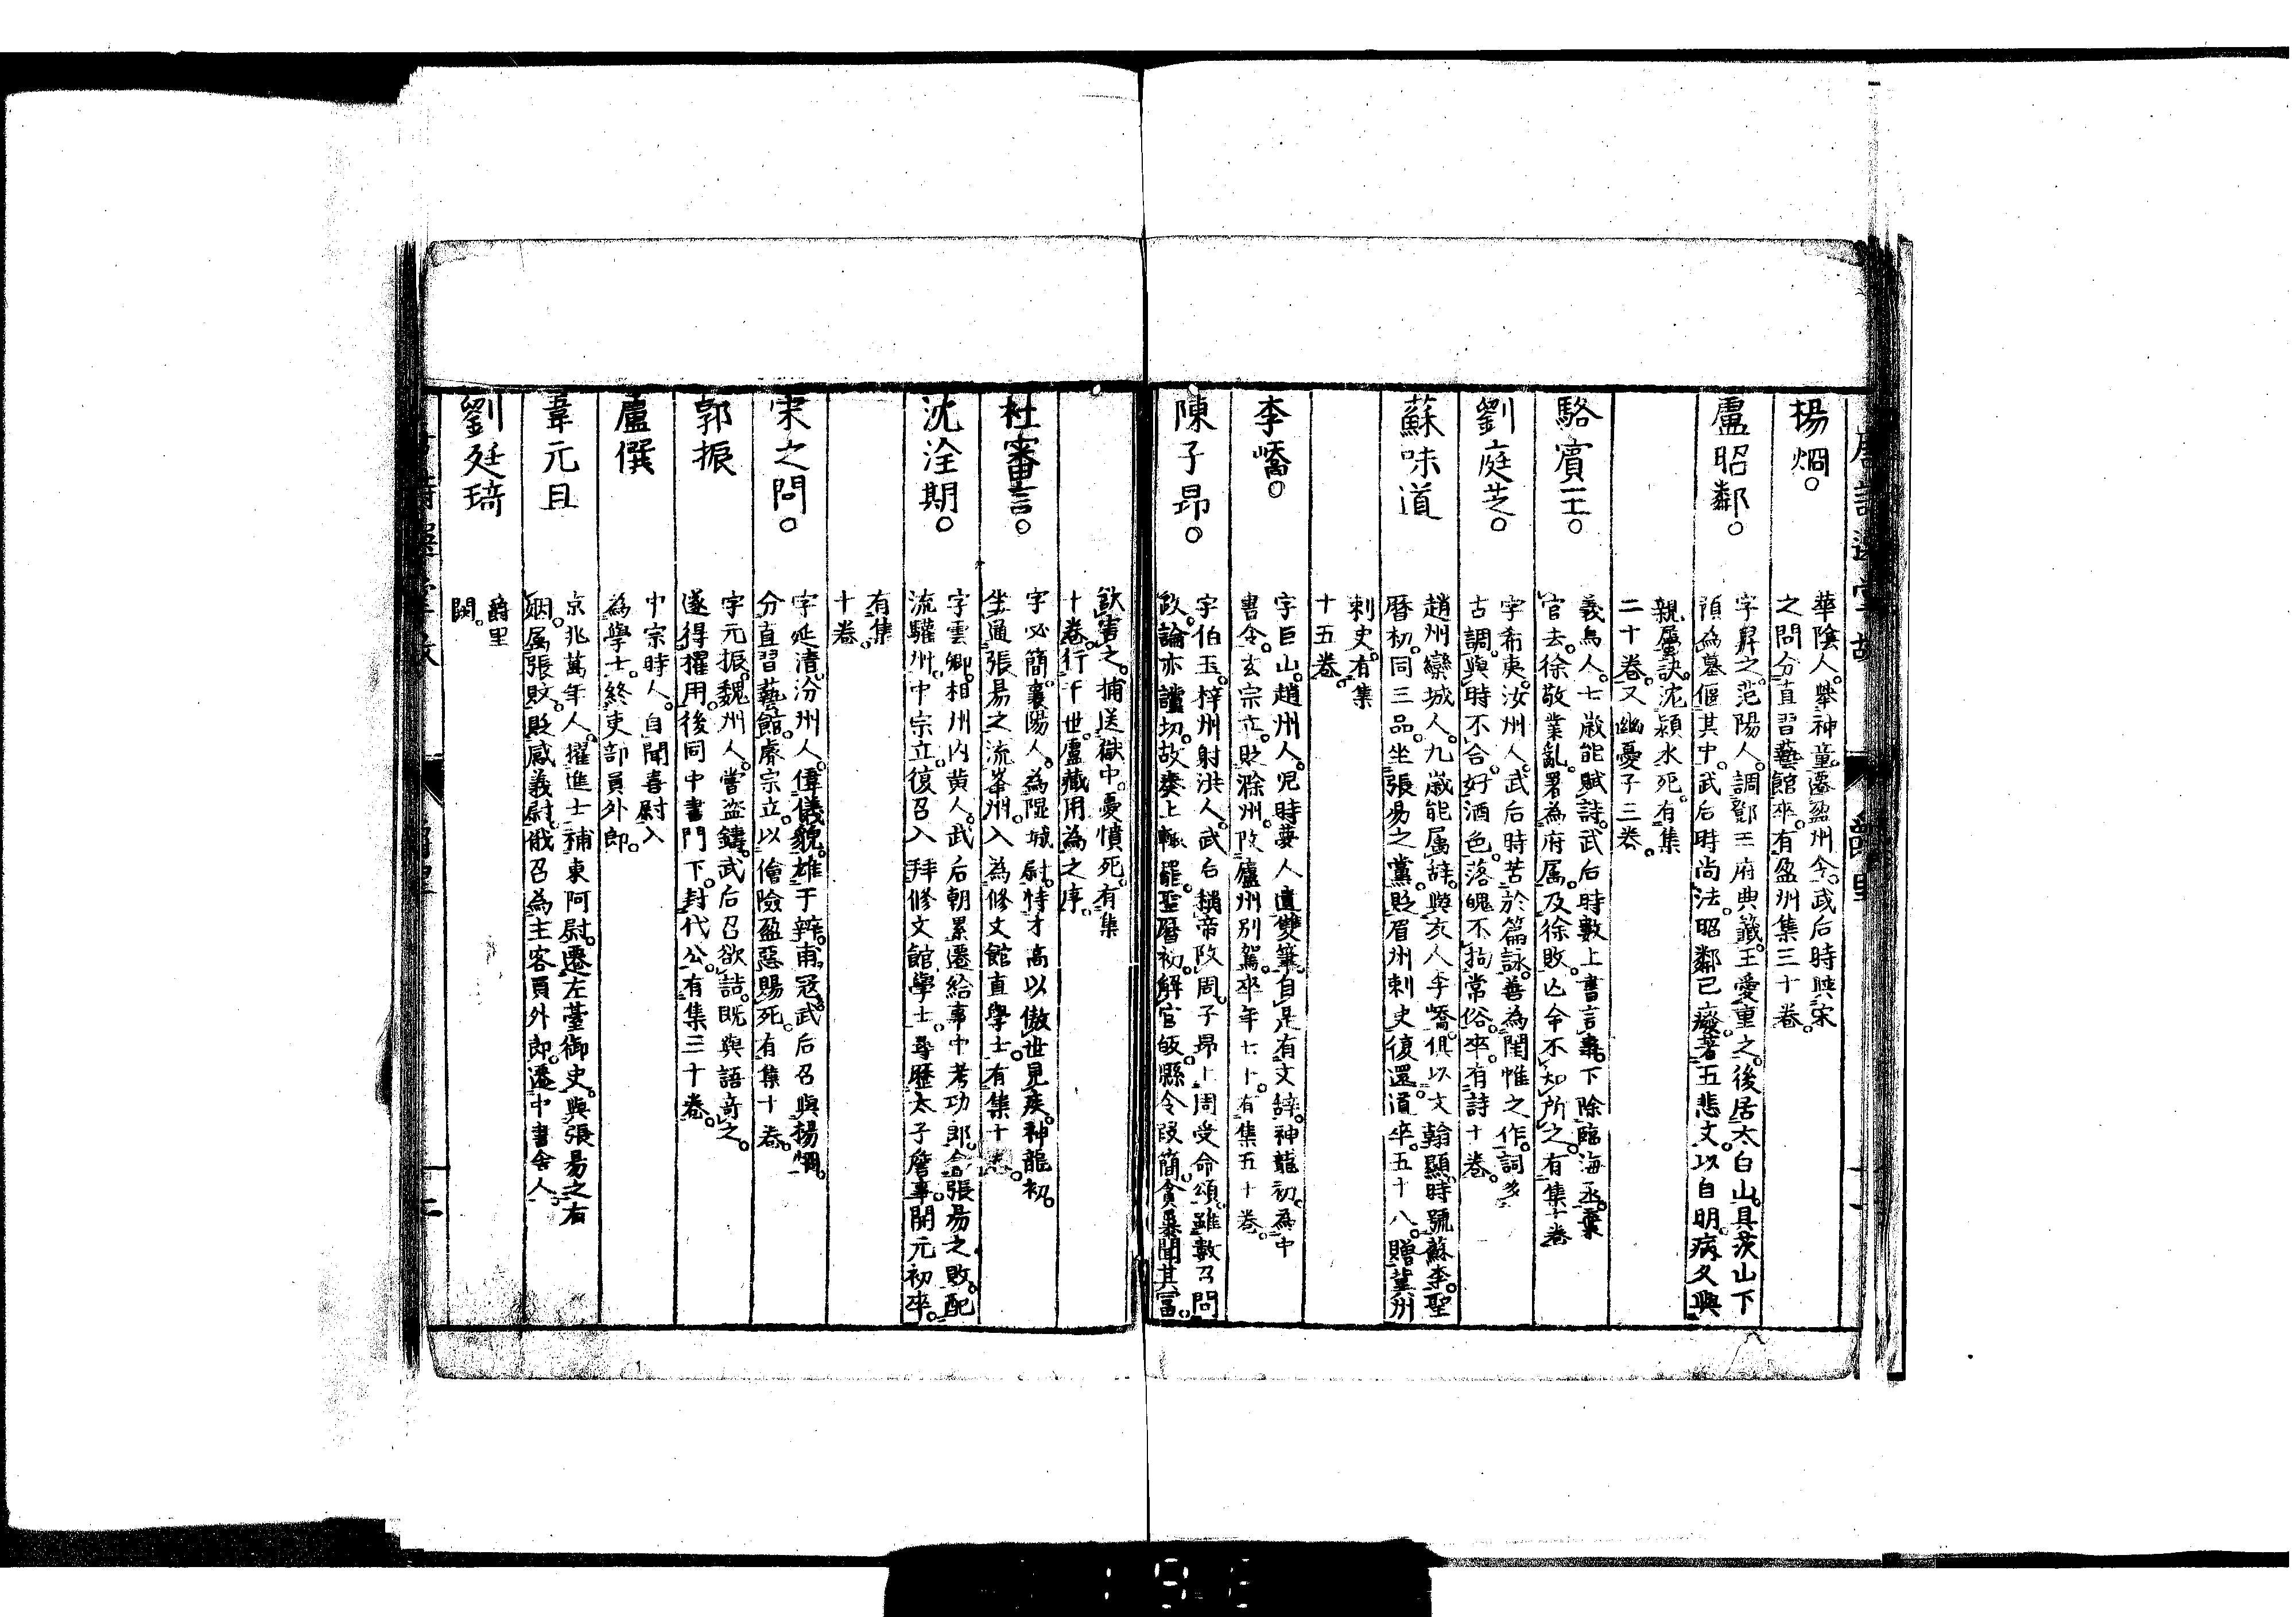 楊烱。
華陰人。舉神童。遷盈州令。武后時與宋
之問分直習藝館卒。有盈州集三十卷。
盧昭鄰。
字昇之。范陽人。調鄧王府典籤。王愛重之。後居太白山。具茨山下
預為墓偃其中。武后時尚法。昭鄰已癈。著五悲文。以自明。病久與
親屬訣。沈潁水死。有集
二十卷。又幽憂子三卷。
駱賓王。
義烏人。七歲能賦詩。武后時數上書言事。下除臨海丞。棄
官去。徐敬業亂。署為府属。及徐敗。亡命不知所之。有集十卷
劉庭芝。
字希夷。汝州人。武后時苦於篇詠。善為閨帷之作。詞多
古調。與時不合。好酒色。落魄不拘常俗。卒。有詩十卷。
蘇味道
趙州欒城人。九歲能属辞。與友人李嶠。俱以文翰顯。時號蘇李。聖
曆初。同三品。坐張易之黨。貶眉州刺史復還。道卒。五十八。贈冀州
刺史。有集
十五卷。
李嶠。
字巨山。趙州人。児時夢人遺雙筆。自是有文辞。神龍初。為中
書令。玄宗立。貶滁州。改廬州別駕。卒年七十。有集五十卷。
陳子昂。
字伯玉。梓州射洪人。武后稱帝改周。子昂上周受命頌。雖數召問
政論亦讜切。故奏上輙罷。聖曆初。解官皈。縣令段簡。貪暴聞其富。
欲害之。捕送獄中。憂憤死。有集
十卷。行于世。盧藏用為之序。
杜審言。
字必簡。襄陽人。為隰城尉。恃才高以傲世見疾。神龍初。
坐通張易之流峯州。入為修文館直學士。有集十卷。
沈佺期。
字雲卿。相州内黄人。武后朝累遷給事中考功郎。會張易之敗。配
流驩州。中宗立。復召入拜修文館學士。尋歷太子詹事。開元初卒。
有集
十卷。
宋之問。
字延清。汾州人。偉儀貌。雄于辨。甫冠。武后召與楊烱。
分直習藝館。睿宗立。以儈險盈惡賜死。有集十卷。
郭振
字元振。魏州人。嘗盗鑄。武后召欲詰。既與語奇之。
遂得擢用。後同中書門下。封代公。有集三十卷。
盧僎
中宗時人。自聞喜尉入
為學士。終吏部員外郎。
韋元旦
京兆萬年人。擢進士補東阿尉。遷左臺御史。與張易之有
姻属。張敗。貶感義尉。俄召為主客員外郎。遷中書舍人。
劉廷琦
爵里
闕。